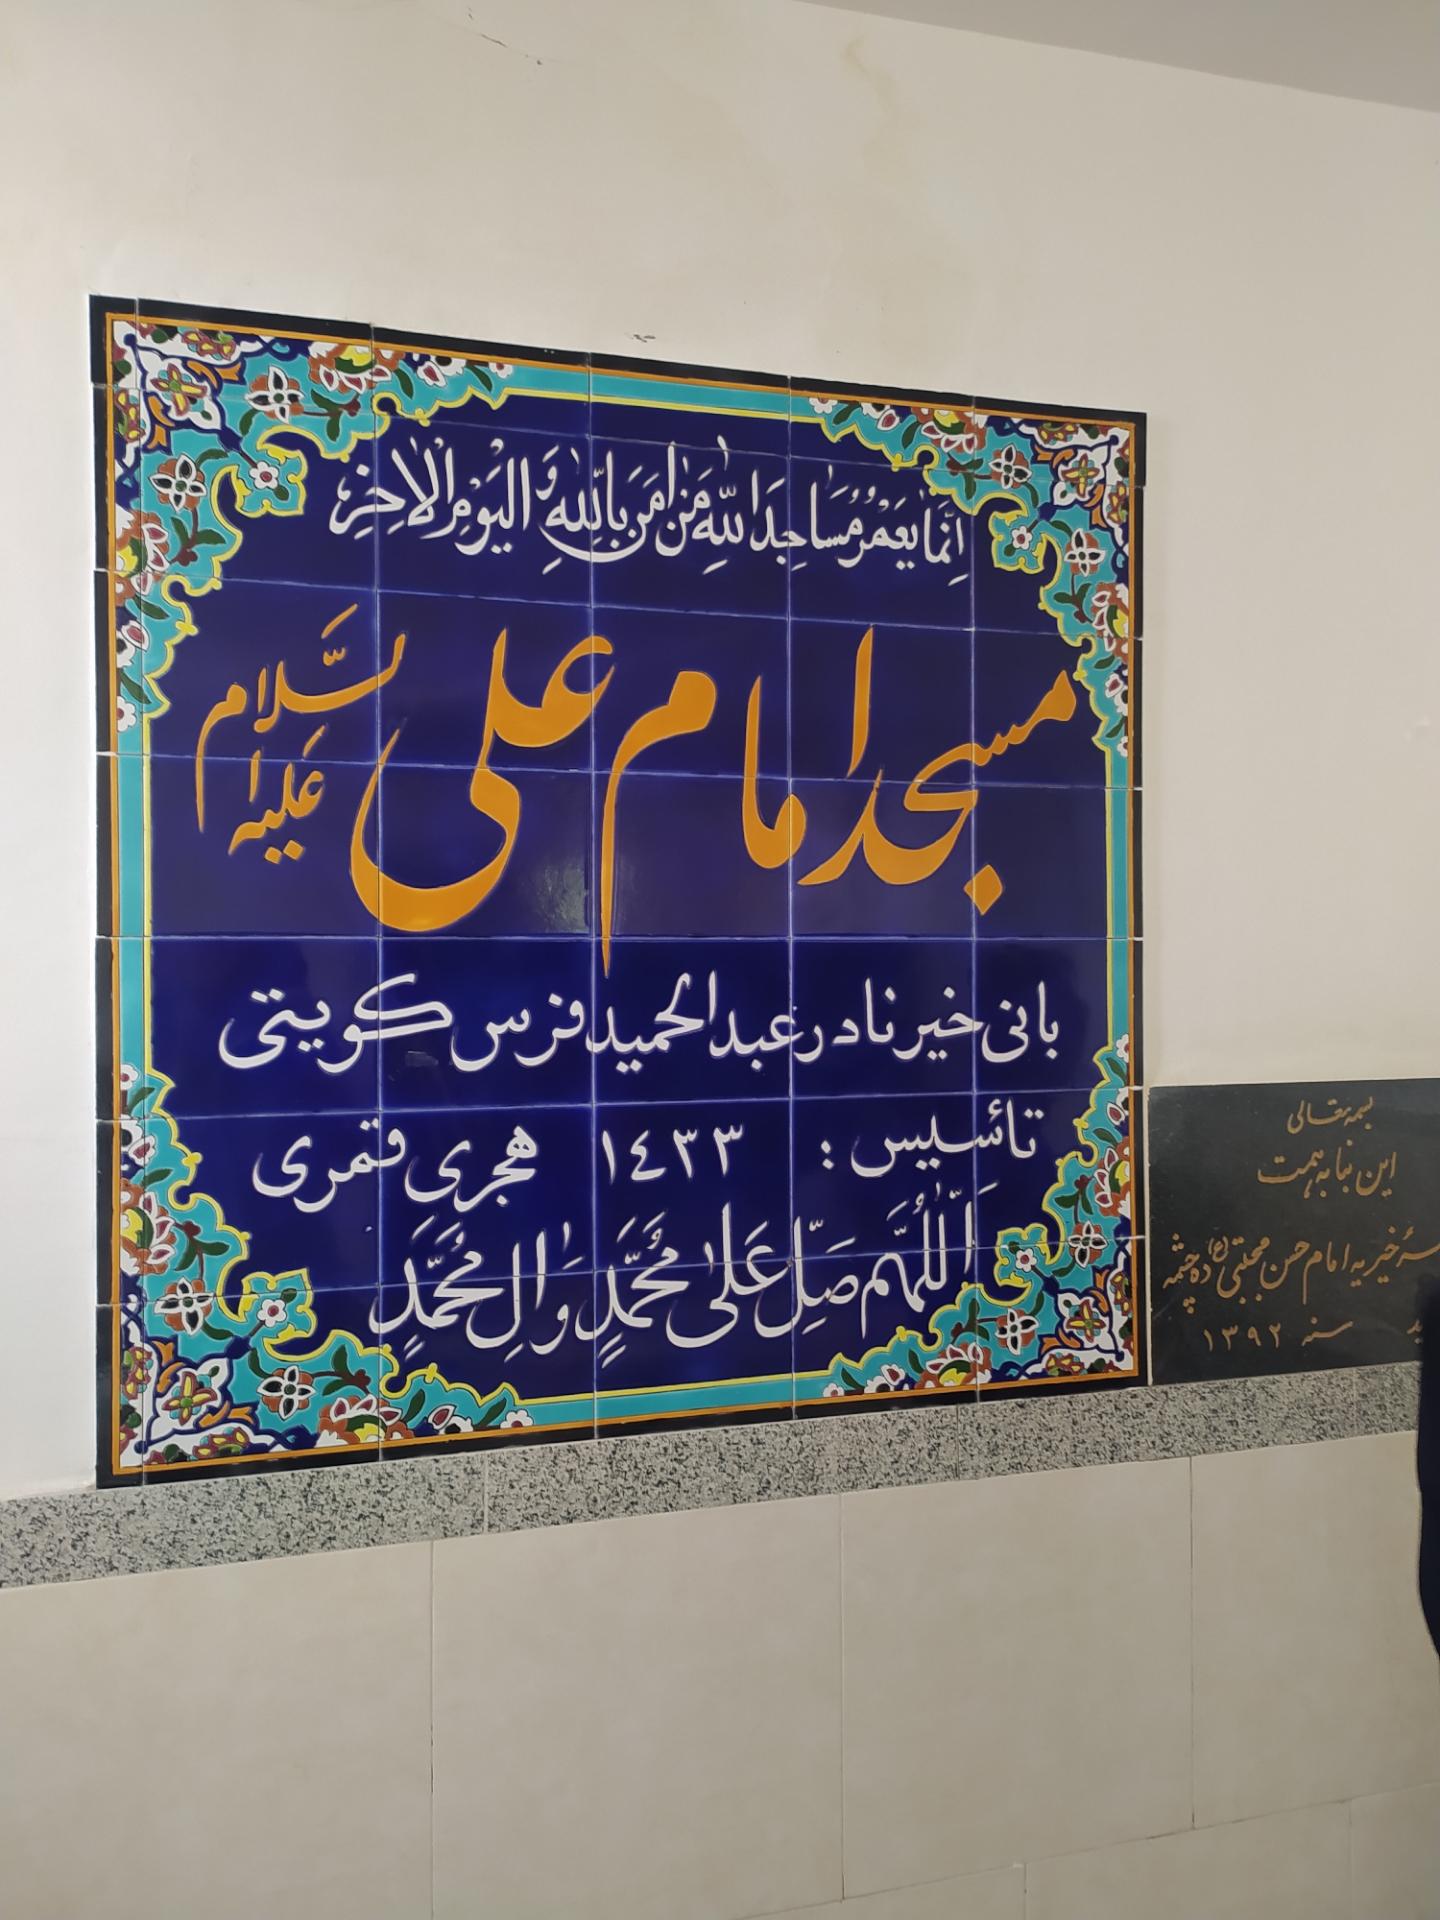 اِنَّمَا یَعْمُرُ مَسَاجِدَ اللّٰهِ مَنْ اٰمَنَ بِاللّٰهِ وَ الْیَوْمِ الْاٰخِرِ
مسجد امام علی علیه السَّلام
بانی خیر نادر عبدالحمید فرس کویتی
تأسیس : ١٤٣٣ هجری قمری
اَللّٰهُمَّ صَلِّ عَلٰی مُحَمَّدٍ وَ اٰلِ مُحَمَّدٍ
بسمه تعالی
این بنا به همت
خیریه امام حسن مجتبی (ع) ده چشمه
سنه ١٣٩٢